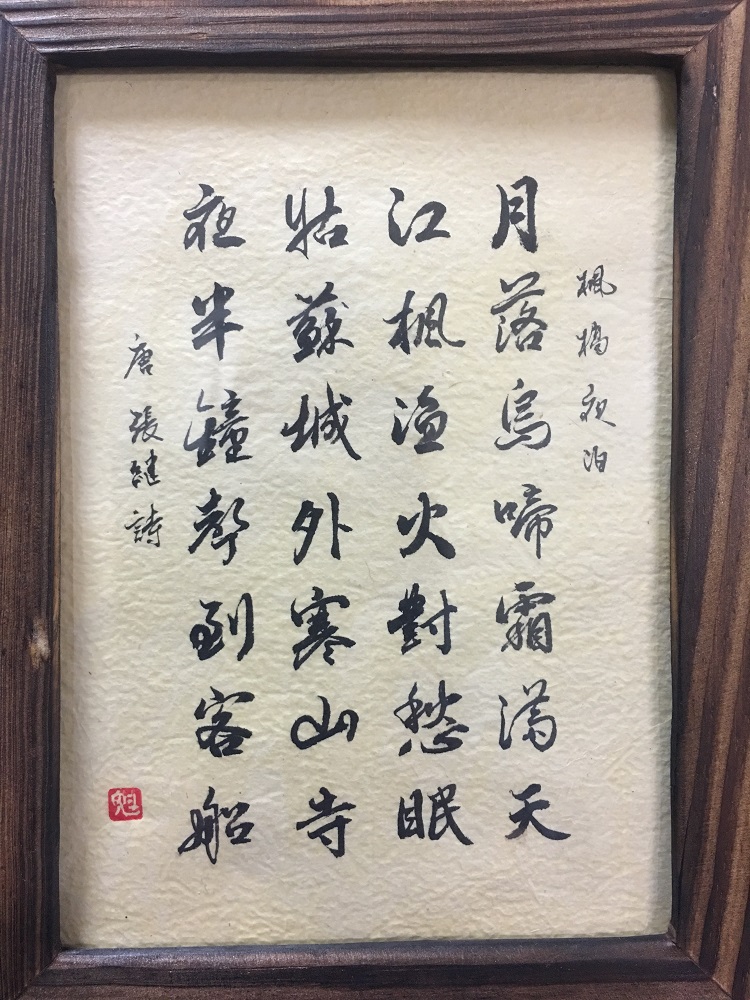 楓橋夜泊
月落烏啼霜滿天
江楓漁火對愁眠
姑蘇城外寒山寺
夜半鐘聲到客船
唐張繼詩